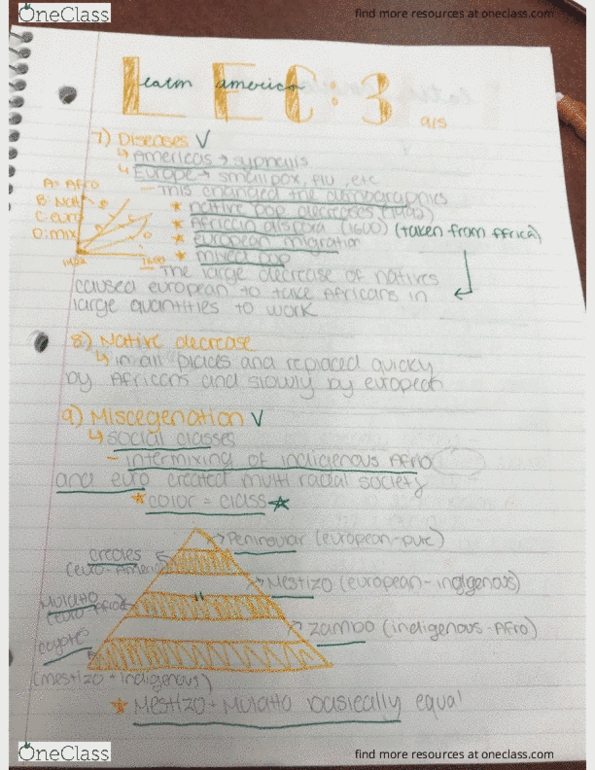 OneClass
find more resources at oneclass.com
LEC: 3
latin america
9/5
7) Diseases V
↳ Americas → syphallis
↳ Europe → small pox, flu, etc
- This changed the demographics
* native pop decreases (1492)
* African dispora (1600) (taken from Africa)
* European migration
* mixed pop
A = Afro
B: Nat
C: euro
D: mix
1492
1600
- The large decrease of natives
caused european to take Africans in
large quantities to work
8) Native decrease
↳ in all places and replaced quicky
by Africans and slowly by european
9) Miscegenation V
↳ social classes
- intermixing of indigenous Afro
and euro created multi racial society
* color = class ☆
→ Peninsular (european-pure)
creoles
(euro-America
→ Mestizo (european-indigenous)
Mulato
(euro Afro)
→ Zambo (indigenous-Afro)
coyotes
(mestizo + indigenous)
* Mestizo + Mulatto basically equal
OneClass
find more resources at oneclass.com